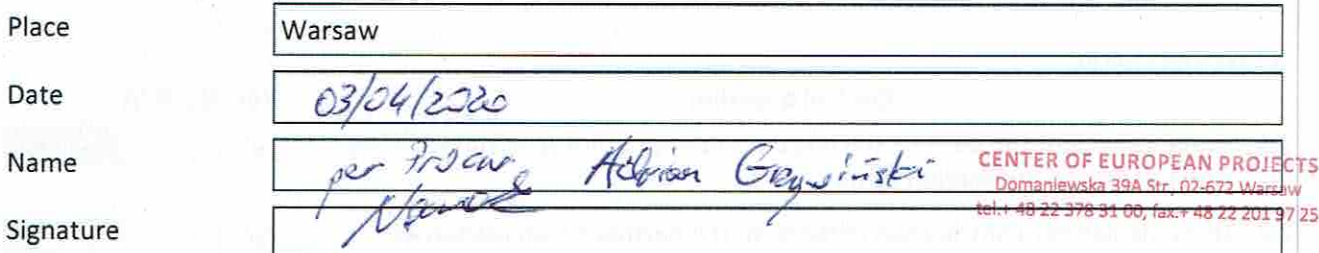 Place Warsaw
Date 03/04/2020
Name per Adrian
CENTER OF EUROPEAN PROJECTS
Domaniewska 39A Str, 02-672 Warsaw
tel.+ 48 22 378 31 00, fax.+ 48 22 201 97 25
Signature